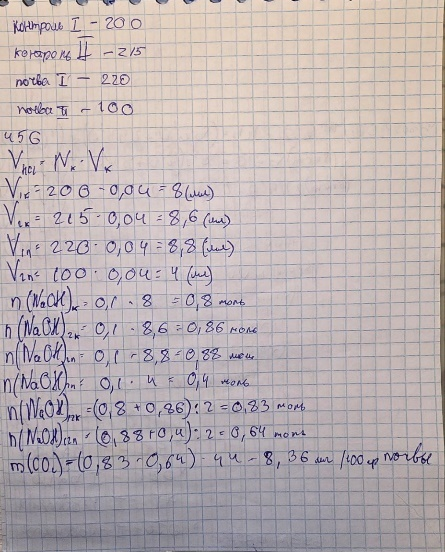 контроль I - 200
контроль II - 215
почва I - 220
почва II - 100
456
V HCl = Nк · Vк
V1к = 200 · 0,04 = 8 (мл)
V2к = 215 · 0,04 = 8,6 (мл)
V1п = 220 · 0,04 = 8,8 (мл)
V2п = 100 · 0,04 = 4 (мл)
n(NaOH)к = 0,1 · 8 = 0,8 моль
n(NaOH)2к = 0,1 · 8,6 = 0,86 моль
n(NaOH)1п = 0,1 · 8,8 = 0,88 моль
n(NaOH)2п = 0,1 · 4 = 0,4 моль
n(NaOH)12к = (0,8 + 0,86) : 2 = 0,83 моль
n(NaOH)12п = (0,88 + 0,4) : 2 = 0,64 моль
m(CO2) = (0,83 - 0,64) · 44 = 8,36 мг /100 гр почвы